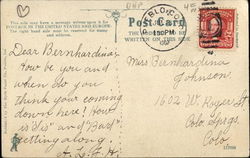 This side may have a message written upon it for
POSTAGE IN THE UNITED STATES AND EUROPE.
The right hand side must be reserved for the
Post Card
WRITTEN ON THIS SIDE
130PM
Dear Bernhardina:
How be you and
when do you
think your coming
down here? How
is "Sis" and "Bart"
getting along.
Miss Bernhardina
Johnson.
1602 W.
Colo Springs
Colo